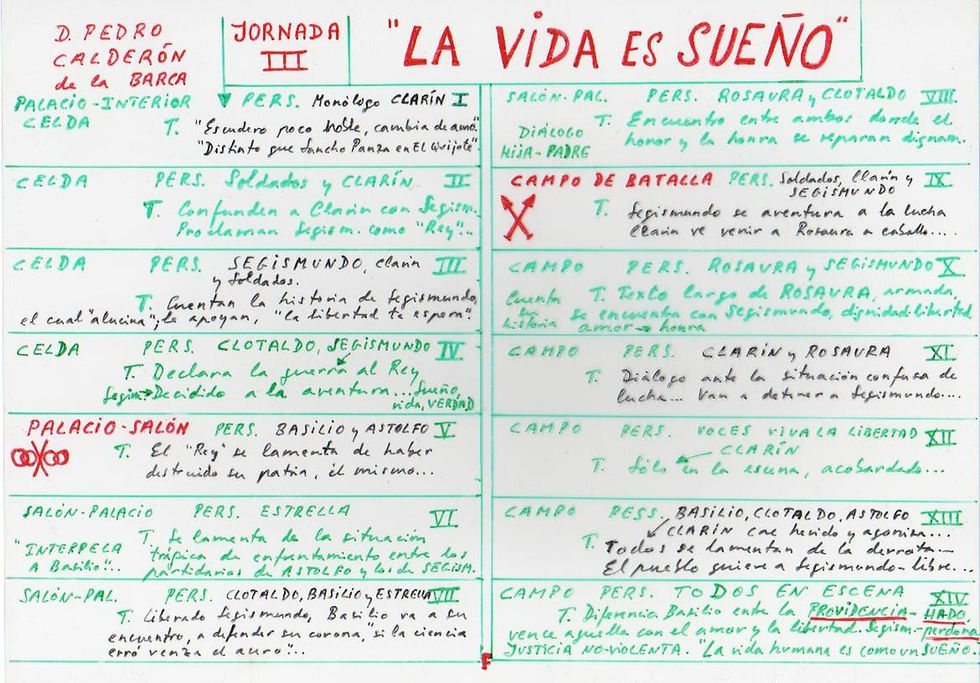 D. PEDRO
CALDERÓN
de la BARCA
JORNADA
III
"LA VIDA ES SUEÑO"
PALACIO-INTERIOR PERS. Monólogo CLARÍN I
CELDA
T. "Escudero poco noble, cambia de amo".
"Distinto que Sancho Panza en El Quijote".
CELDA PERS. Soldados y CLARÍN II
T. Confunden a Clarín con Segism.
Proclaman Segism. como "Rey"...
CELDA PERS. SEGISMUNDO, Clarín III
y Soldados.
T. Cuentan la historia de Segismundo,
el cual "alucina"; le apoyan, "la libertad te espera".
CELDA PERS. CLOTALDO, SEGISMUNDO IV
T. Declara la guerra al Rey
Segism. Decidido a la aventura... Sueño,
vida, VERDAD
PALACIO-SALÓN PERS. BASILIO y ASTOLFO V
T. El "Rey" se lamenta de haber
destruido su patria, él mismo...
SALÓN-PALACIO PERS. ESTRELLA VI
"INTERPELA
A Basilio"..
T. Se lamenta de la situación
trágica de enfrentamiento entre los
partidarios de ASTOLFO y los de SEGISM.
SALÓN-PAL. PERS. CLOTALDO, BASILIO y ESTRELLA VII
T. Liberado Segismundo, Basilio va a su
encuentro, a defender su corona, "si la ciencia
erró venza el acero"...
SALÓN-PAL. PERS. ROSAURA y CLOTALDO VIII
DIÁLOGO
HIJA-PADRE
T. Encuentro entre ambos donde el
honor y la honra se reparan dignam.
CAMPO DE BATALLA PERS. Soldados, Clarín y IX
SEGISMUNDO
T. Segismundo se aventura a la lucha
Clarín ve venir a Rosaura a caballo....
CAMPO PERS. ROSAURA y SEGISMUNDO X
Cuenta
su
historia
T. Texto largo de ROSAURA, armada,
se encuentra con Segismundo, dignidad-libertad
amor→honra
CAMPO PERS. CLARÍN y ROSAURA XI
T. Diálogo ante la situación confusa de
lucha... Van a detener a Segismundo....
CAMPO PERS. VOCES VIVA LA LIBERTAD XII
CLARÍN
T. Sólo en la escena, acobardado...
CAMPO PESS. BASILIO, CLOTALDO, ASTOLFO XIII
CLARÍN cae herido y agoniza...
T. Todos se lamentan de la derrota...
El pueblo quiere a Segismundo-libre...
CAMPO PERS. TODOS EN ESCENA XIV
T. Diferencia Basilio entre la PROVIDENCIA-HADO
vence aquella con el amor y la libertad. Segism.-perdona
JUSTICIA NO-VIOLENTA. "La vida humana es como un SUEÑO..
F